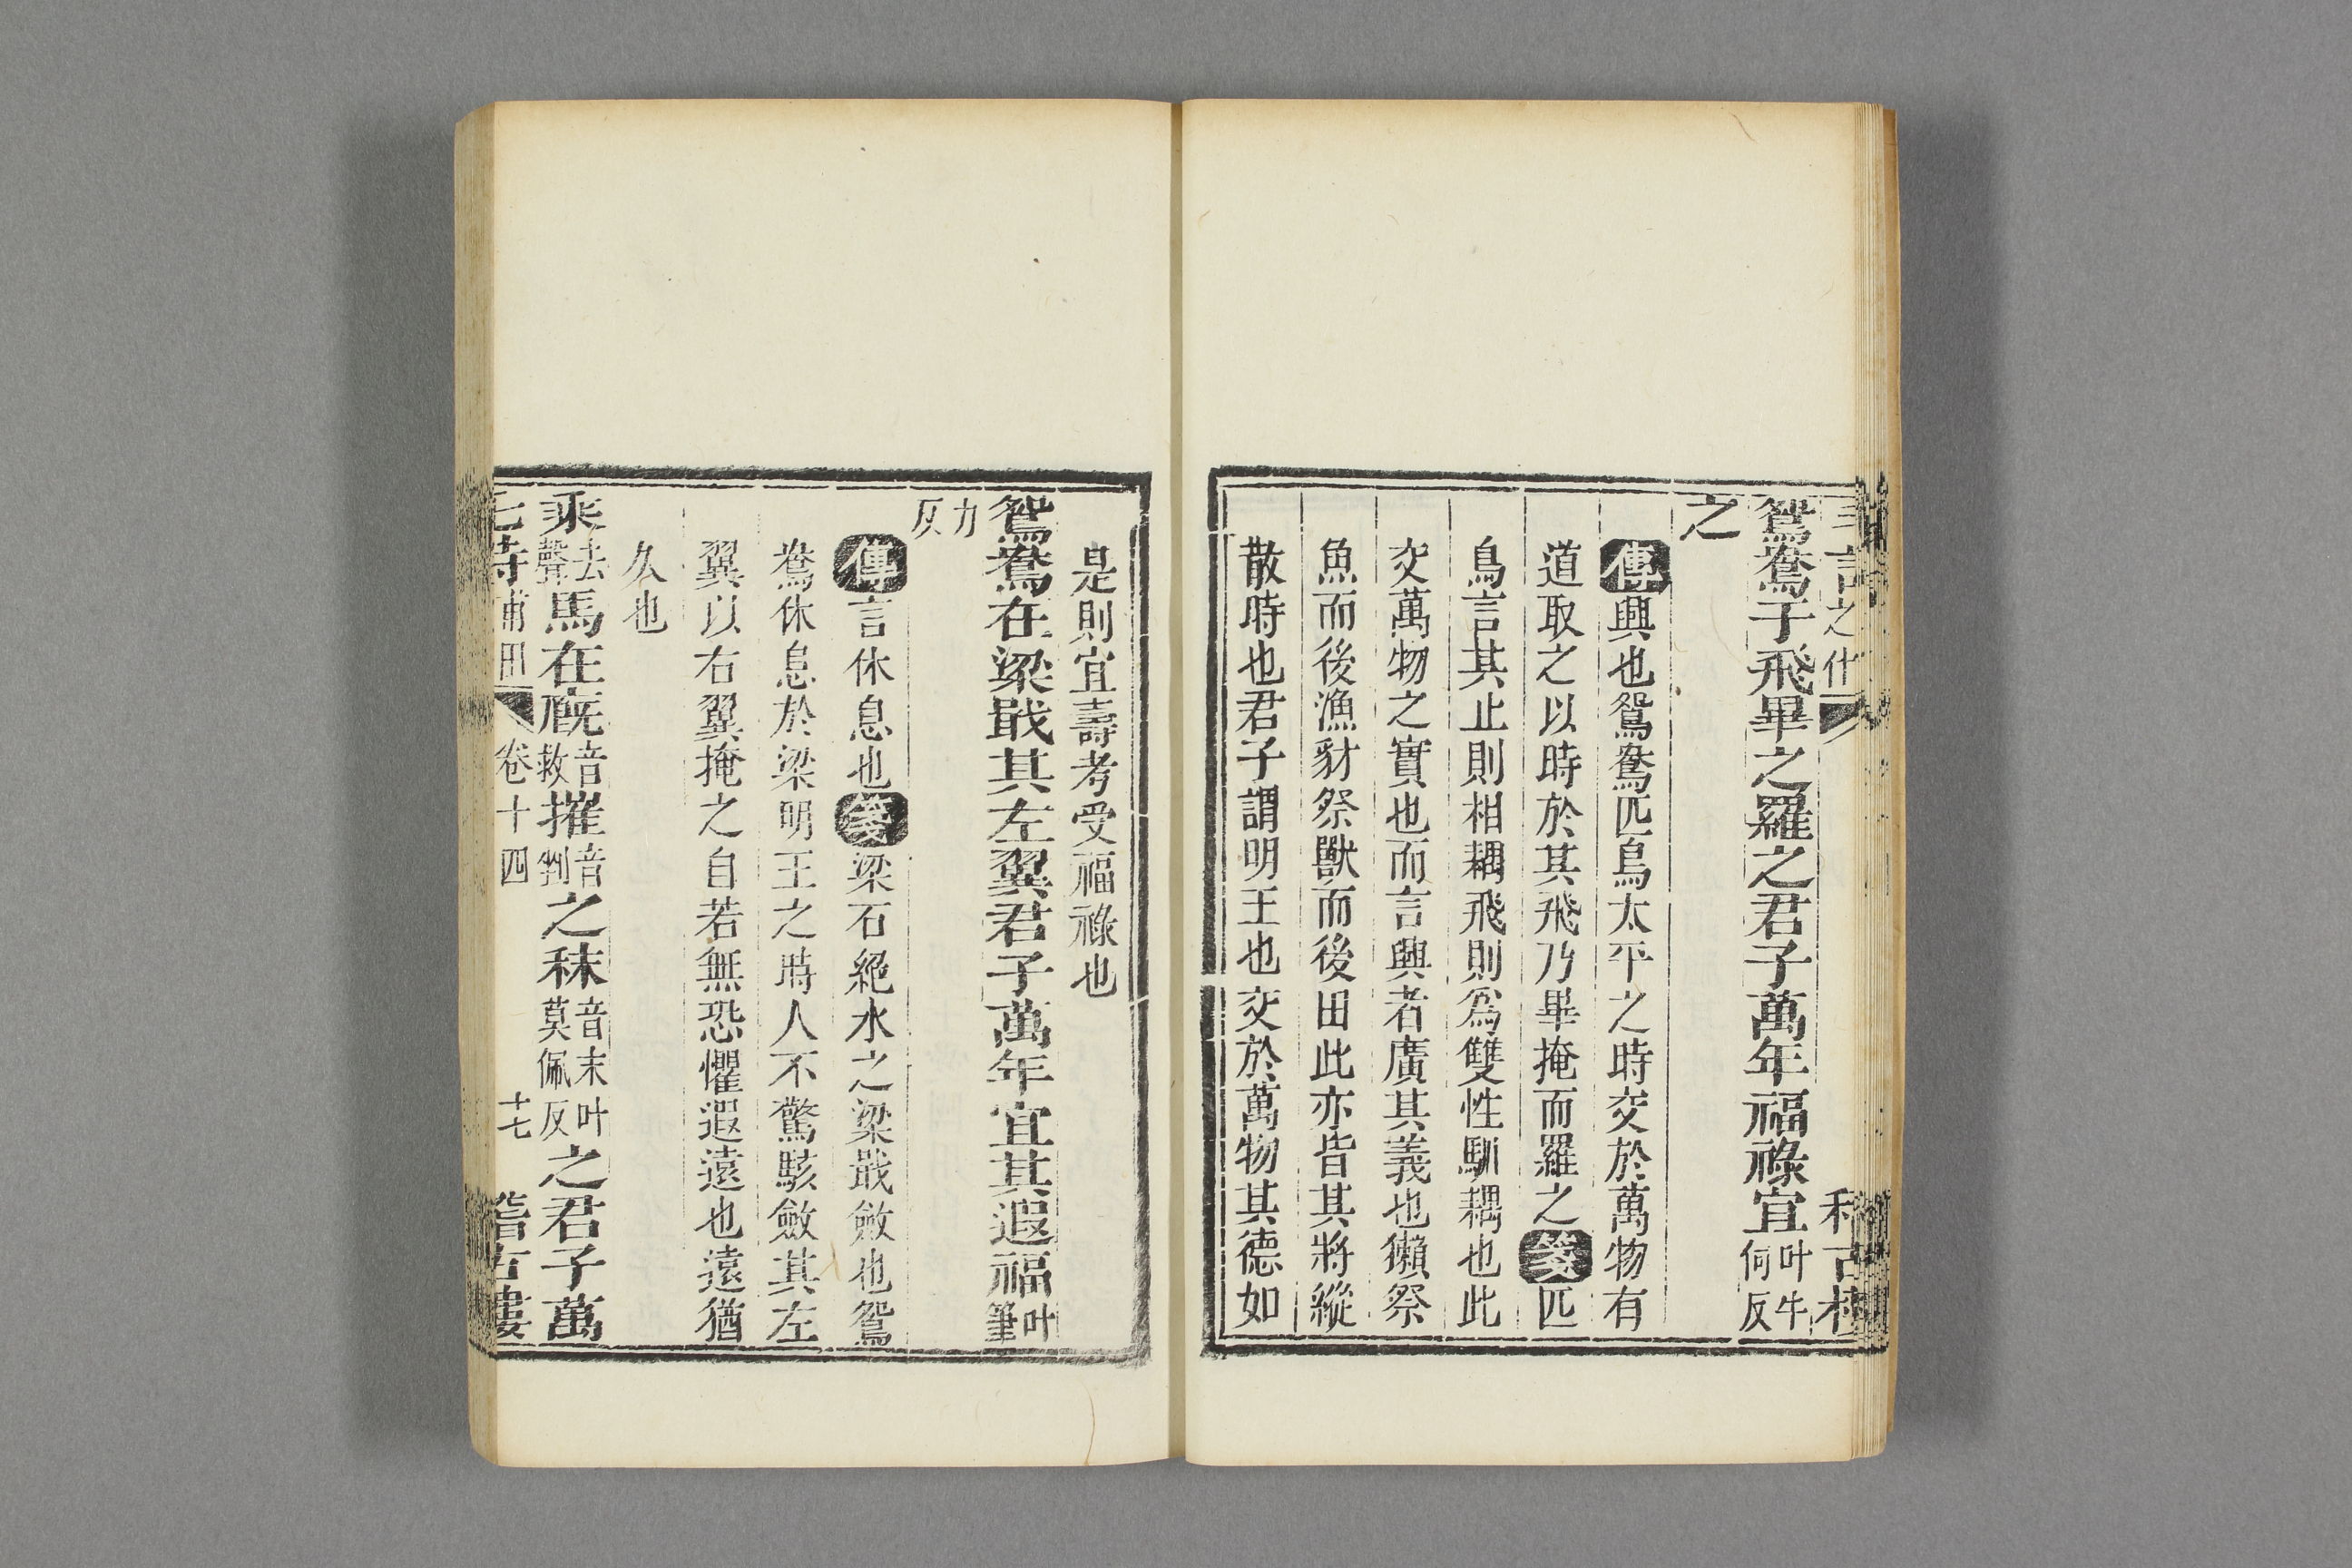 鴛鴦于飛畢之羅之君子萬年福祿宜叶牛何反
之
傳興也鴛鴦匹鳥太平之時交於萬物有
道取之以時於其飛乃畢掩而羅之箋匹
鳥言其止則相耦飛則爲雙性馴耦也此
交萬物之實也而言興者廣其義也獺祭
魚而後漁豺祭獸而後田此亦皆其將縱
散時也君子謂明王也交於萬物其德如
是則宜壽考受福祿也
鴛鴦在梁戢其左翼君子萬年宜其遐福叶筆
力反
傳言休息也箋梁石絕水之梁戢斂也鴛
鴦休息於梁明王之時人不驚駭斂其左
翼以右翼掩之自若無恐懼遐遠也遠猶
久也
乘去聲馬在廐音救摧音剉之秣音末叶莫佩反之君子萬
毛詩甫田 卷十四 十七 稽古樓